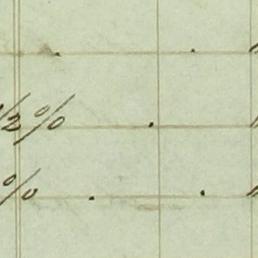 . . "
½ % . "
% . . "